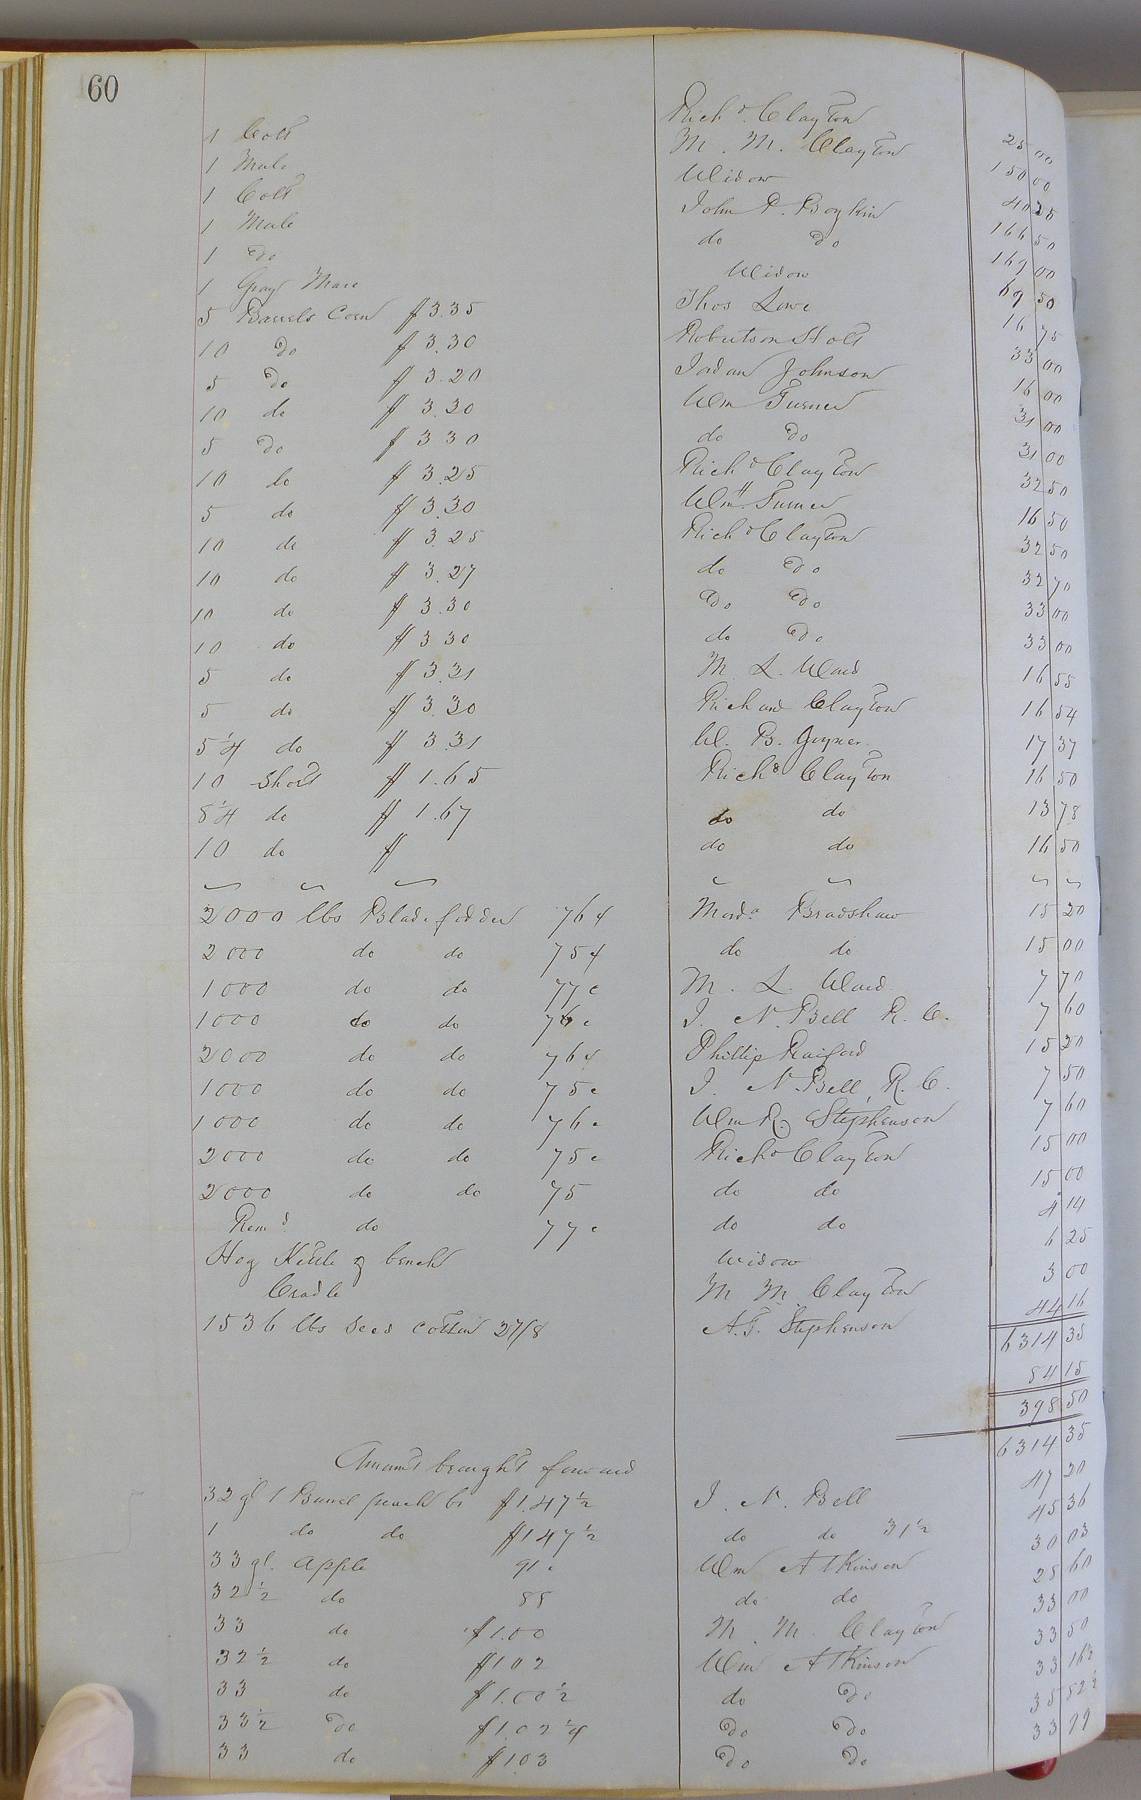 60
Rich.d Clayton
1 Colt M. M. Clayton 25 00
1 Mule Widow 150 00
1 Colt John P. Boykin 40 25
1 Mule do do 166 50
1 do Widow 169 00
1 Gray Mare Thos Lowe 69 50
5 Barrels Corn $3.35 Robertson Holt 16 75
10 do $3.30 Jordan Johnson 33 00
5 do $3.20 Wm Turner 16 00
10 do $3.20 do do 31 00
5 do $3 30 Rich.d Clayton 31 00
10 do $3.25 Wm H Turner 32 50
5 do $3.30 Rich.d Clayton 16 50
10 do $3.25 do do 32 50
10 do $3.27 do do 32 70
10 do $3.30 do do 33 00
10 do $3 30 M L. Ward 33 00
5 do $3.31 Richard Clayton 16 55
5 do $3.30 W. B. Joyner 16 54
5 1/4 do $3 31 Rich.d Clayton 17 37
10 Short $1.65 do do 16 50
8 1/4 do $1.67 do do 13 78
10 do $ 16 50
2000 lbs Blade fodder 76¢ Mord.a Bradshaw 15 20
2000 do do 75¢ do do 15 00
1000 do do 77c M. L. Ward 7 70
1000 do do 76c J. N. Bell R. C. 7 60
2000 do do 76¢ Phillip Raiford 15 20
1000 do do 75c J. N. Bell, R. C. 7 50
1000 do do 76c Wm R Stephenson 7 60
2000 do do 75c Rich.d Clayton 15 00
2000 do do 75 do do 15 00
Rem.d do 77c do do 4 14
Hog Kettle & bench Widow 6 25
Cradle M M. Clayton 3 00
1536 lbs seed cotton 27/8 A. T. Stephenson 44 16
6314 35
84 15
398 50
Amount brought forward 6314 35
32 gl 1 Barrel peach br $1.47 1/2 J. N. Bell 47 20
1 do do $1 47 1/2 do do 31 1/2 45 36
33 gl. Apple 91c Wm Atkinson 30 03
32 1/2 do 88 do do 28 60
33 do $1.00 M. M. Clayton 33 00
32 1/2 do $1 02 Wm Atkinson 33 50
33 do $1.00 1/2 do do 33 16 1/2
33 1/2 do $1.02 1/4 do do 35 52 1/2
33 do $1.03 do do 33 99